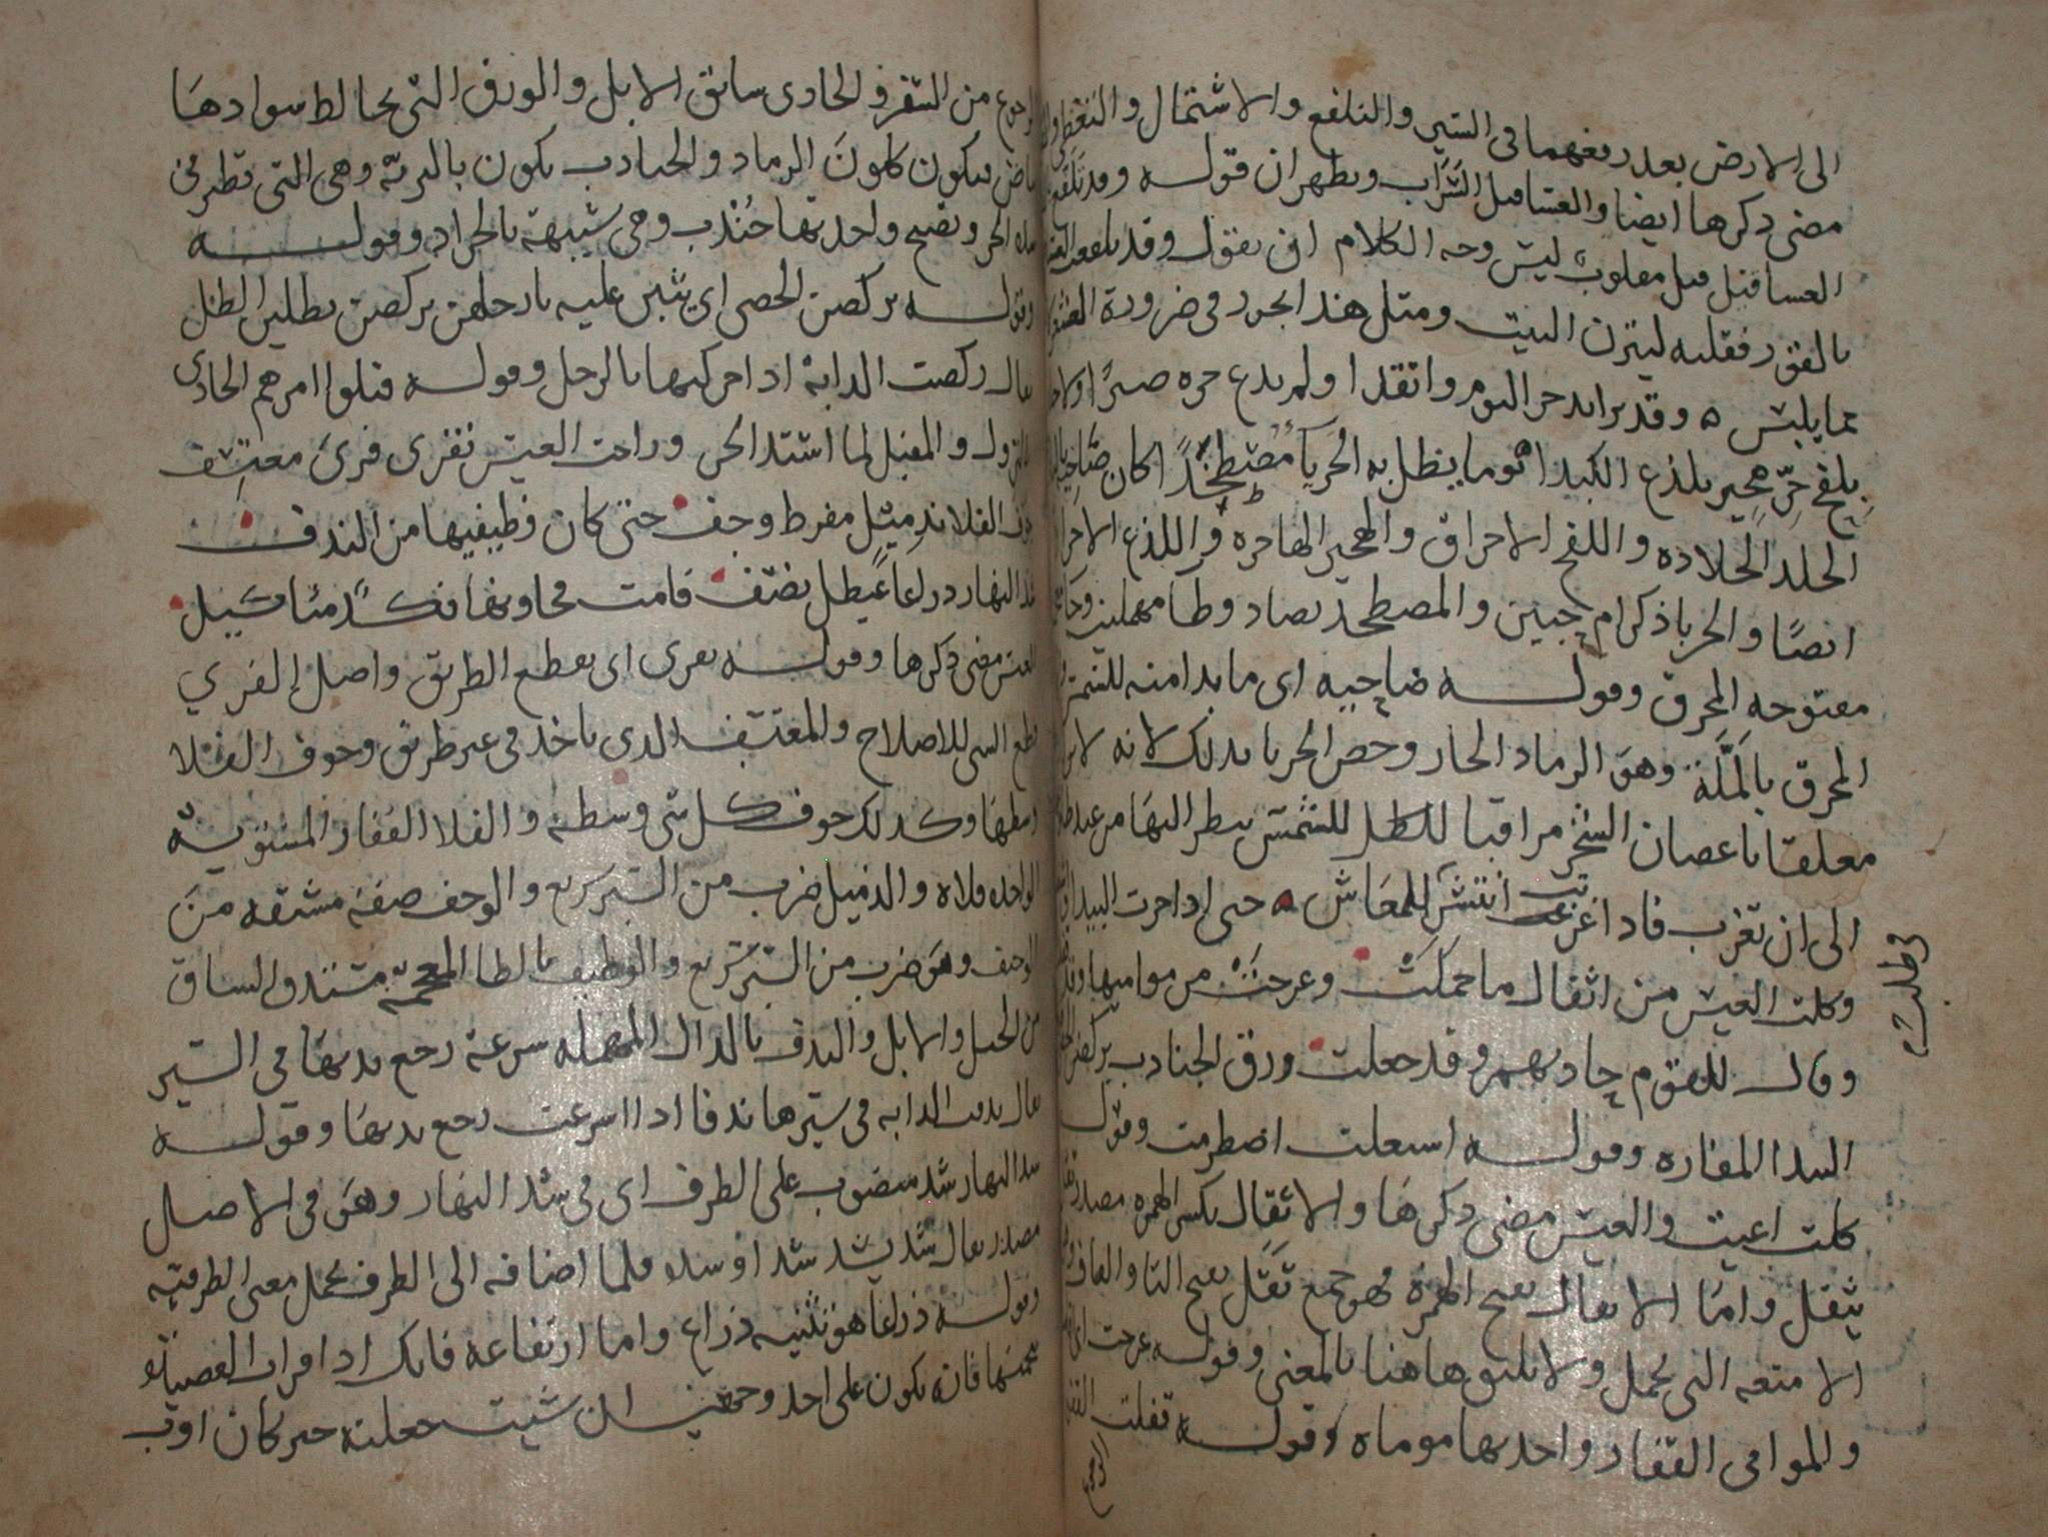 الى الارض بعد رفعهما فى السير والتلفع والاشتمال والتغطى
مضى ذكرها ايضا والعساقيل السراب ويظهر ان قوله وقد تلفع
العساقيل قيل مقلوب ليس وجه الكلام ان يقول وقد تلفعت
بالقور فقلبه ليتزن البيت ومثل هذا يجوز فى ضرورة الشعر
عما يلبس ٥ وقد يزايد حر اليوم واتقدا ولم يدع حره صبرًا ولا
بلفح حرّ هجير يلذع الكبدا يوما يظل به الحرباء مصطخدًا كان ضاحيه
الجلد الجلاده واللفح الاحراق والهجير الهاجره واللذع الاحراق
ايضًا والحربا ذكر ام حبين والمصطخد بصاد وطا مهملتين وخا
مفتوحه المحرق وقوله ضاحيه اى ما بدا منه للشمس
المحرق بالمَلّة وهو الرماد الحار وخص الحربا بذلك لانه لا يزال
معلقا باغصان الشجر مراقبا للشمس ينظر اليها من عند
الى ان تغرب فاذا غربت انتشر للمعاش ٥ حتى اذا حرت البيدا
وكلت العيس من اثقال ما حملت وعرجت من موامها
وقال للقوم حاديهم وقد جعلت ورق الجنادب يركضن
البيدا المفازه وقوله اشعلت اضطرمت وقوله
كلت اعيت والعيس مضى ذكرها والاثقال بكسر الهمزه مصدر
يثقل واما الاثقال بفتح الهمزة فهو جمع ثقل بفتح الثا والقاف
الامتعه التى تحمل ولا يليق هاهنا بالمعنى وقوله عرجت اى
والموامى القفار واحدتها موماه وقوله قفلت
الرجوع
وظلت
الرجوع من السفر والحادى سائق الابل والورق التى يخالط سوادها
بياض فيكون كلون الرماد والجنادب يكون بالبرية وهى التى تطير فى
شدة الحر وتصيح واحدتها جُنْدب وهى شبيهة بالجراد وقوله
وقوله يركضن الحصى اى يثبن عليه بارجلهن يركضن يطلبن الظل
يقال ركضت الدابة اذا حركتها بالرجل وقوله قيلوا امرهم الحادى
بالنزول والمقيل لما اشتد الحر وراحت العيس تفرى فرى معتسف
جوف الفلا بذميل مفرط وجف حتى كان وظيفيها من الندف
شد النهار ذراعا عيطل نصف قامت فجاوبها نكد مثاكيل
العيس مضى ذكرها وقوله تفرى اى تقطع الطريق واصل الفري
قطع الشى للاصلاح والمعتسف الذى ياخذ فى غير طريق وجوف الفلا
وسطها وكذلك جوف كل شى وسطه والفلا القفار المستويه
الواحده فلاه والذميل ضرب من السير سريع والوجف صفة مشتقه من
الوجيف وهو ضرب من السير سريع والوظيف بالظا المعجمة مستدق الساق
من الخيل والابل والندف بالدال المهمله سرعة رجع يديها فى السير
يقال ندفت الدابه فى سيرها ندفا اذا اسرعت رجع يديها وقوله
شد النهار شد منصوب على الظرف اى فى شد النهار وهو فى الاصل
مصدر يقال شد يشد شدا او شده فلما اضافه الى الظرف تحمل معنى الظرفية
وقوله ذراعا هو تثنيه ذراع واما ارتفاعه فانك اذا قرات القصيدة
فانه يكون على احد وجهين ان شيت جعلته خبر كان اوب